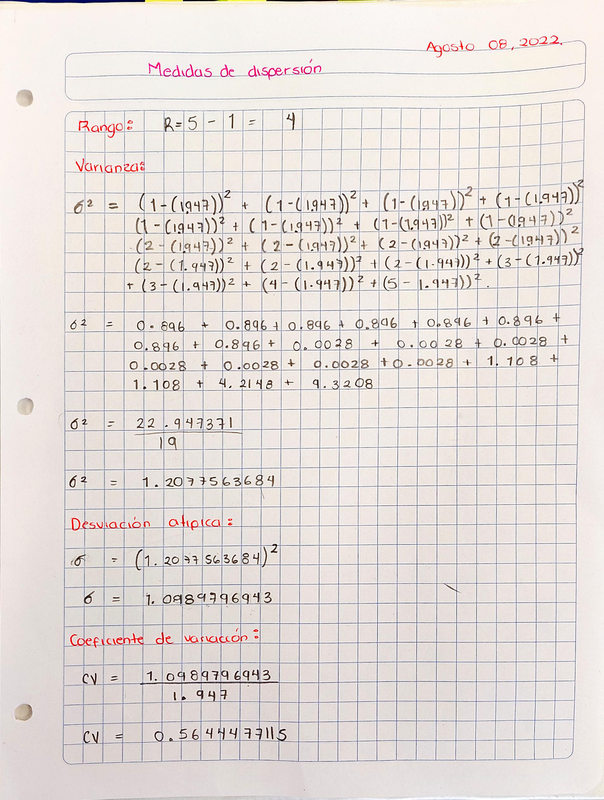 Agosto 08, 2022.
Medidas de dispersión
Rango: R=5 - 1 = 4
Varianza:
σ² = (1-(1.947))² + (1-(1.947))² + (1-(1.947))² + (1-(1.947))²
(1-(1.947))² + (1-(1.947))² + (1-(1.947))² + (1-(1.947))²
(2-(1.947))² + (2-(1.947))² + (2-(1.947))² + (2-(1.947))²
(2-(1.947))² + (2-(1.947))² + (2-(1.947))² + (3-(1.947))²
+ (3-(1.947))² + (4-(1.947))² + (5-1.947))².
σ² = 0.896 + 0.896 + 0.896 + 0.896 + 0.896 + 0.896 +
0.896 + 0.896 + 0.0028 + 0.0028 + 0.0028 +
0.0028 + 0.0028 + 0.0028 + 0.0028 + 1.108 +
1.108 + 4.2148 + 9.3208
σ² = 22.947371
19
σ² = 1.2077563684
Desviación atipica:
σ = (1.2077563684)²
σ = 1.0989796943
Coeficiente de variación:
CV = 1.0989796943
1.947
CV = 0.5644477115